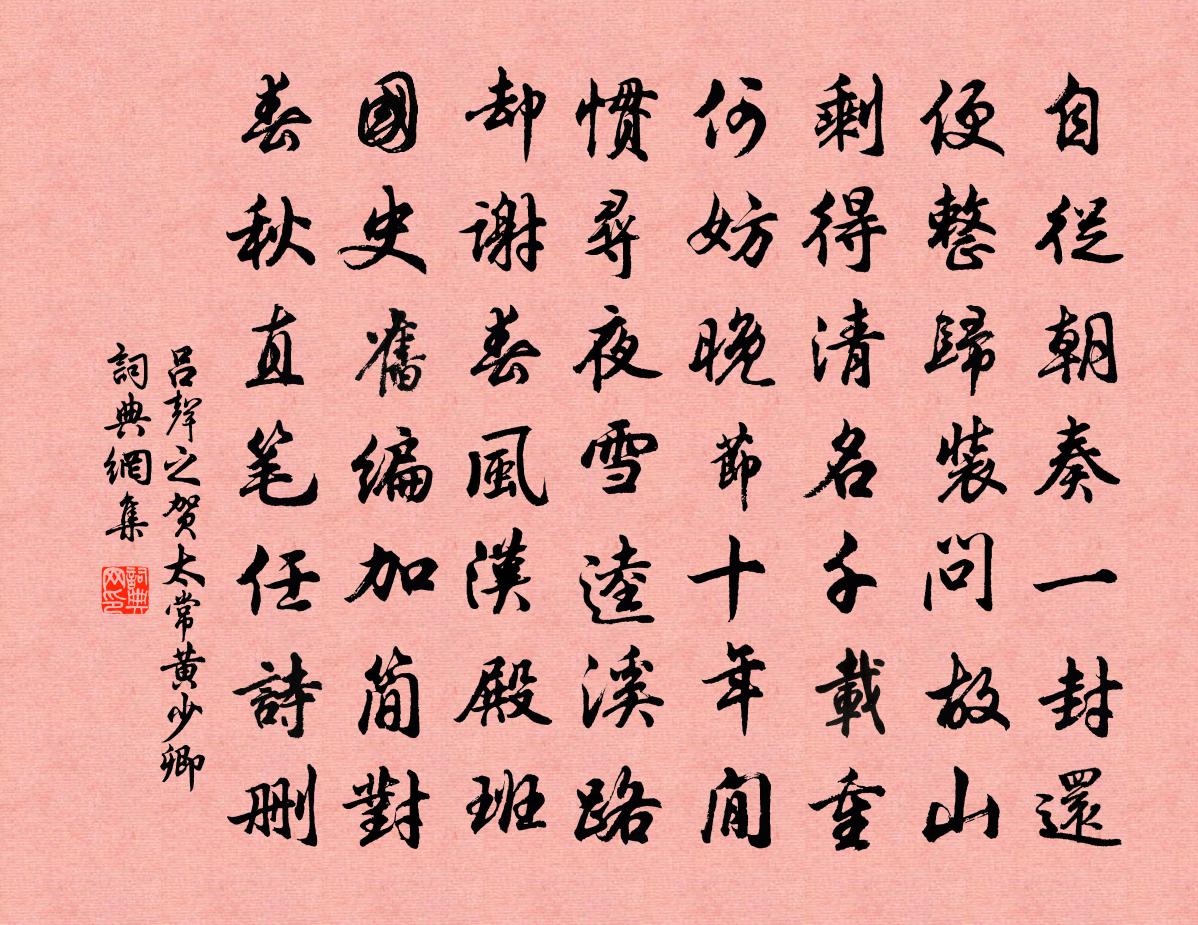 自從朝奏一封還
便整歸裝問故山
剩得清名千載重
何妨晚節十年閒
慣尋夜雪逵溪路
却謝春風漢殿班
國史舊編加簡對
春秋直笔任詩刪
吕聲之贺太常黄少卿
詞典網集
詞典网印